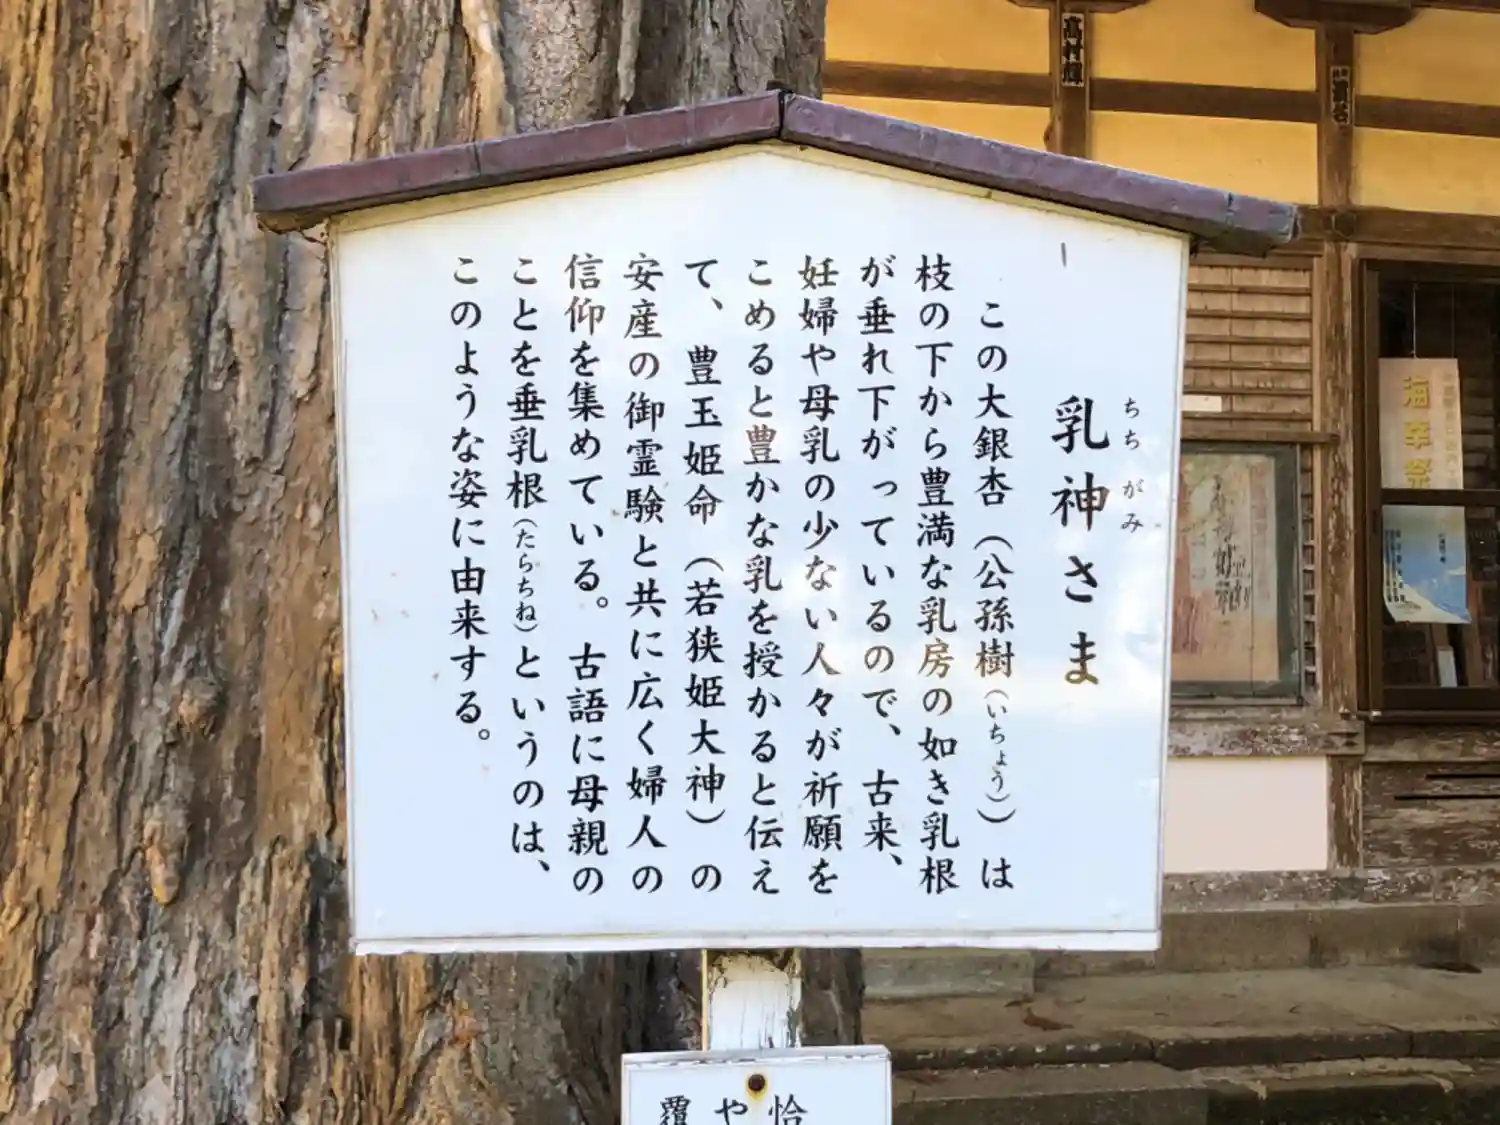 乳神さま
ちち がみ
この大銀杏（公孫樹（いちょう））は
枝の下から豊満な乳房の如き乳根
が垂れ下がっているので、古来、
妊婦や母乳の少ない人々が祈願を
こめると豊かな乳を授かると伝え
て、豊玉姫命（若狭姫大神）の
安産の御霊験と共に広く婦人の
信仰を集めている。古語に母親の
ことを垂乳根（たらちね）というのは、
このような姿に由来する。
恰
や
覆
高村輝
海幸祭